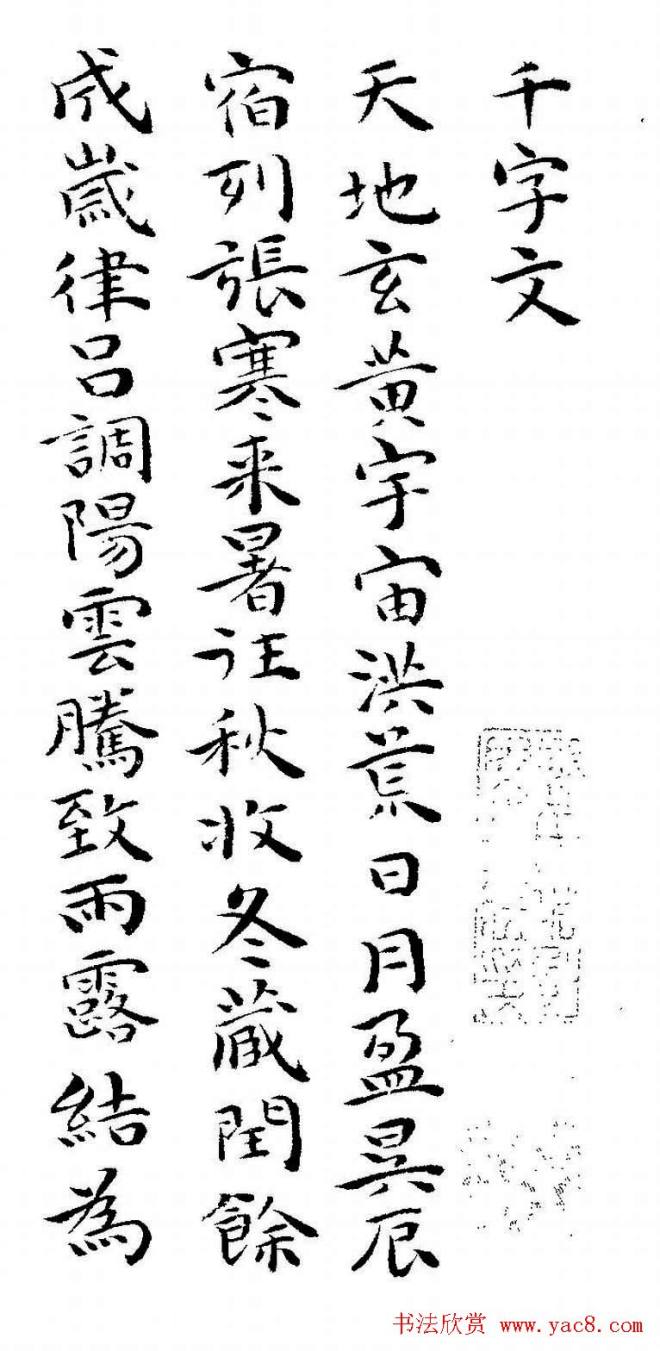 千字文
天地玄黄宇宙洪荒日月盈昃辰
宿列張寒来暑往秋收冬蔵閏餘
成歲律吕調陽雲騰致雨露結為
书法欣赏 www.yac8.com